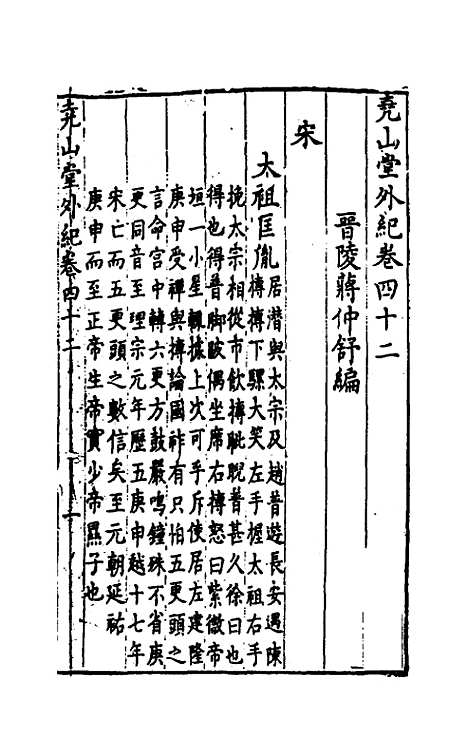 堯山堂外紀卷四十二
晉陵蔣仲舒編
宋
太祖匡胤居潛與太宗及趙普遊長安遇陳
摶摶下騾大笑左手握太祖右手
挽太宗相從市飲摶眦睨普甚久徐曰也
得也得普脚跛偶坐席右摶怒曰紫微帝
垣一小星輙據上次可乎斥使居左建隆
庚申受禪與摶論國祚有只怕五更頭之
言命宮中轉六更方鼓嚴鳴鐘殊不省庚
更同音至理宗元年歷五庚申越十七年
宋亡而五更頭之數信矣至元朝延祐
庚申而至正帝生帝實少帝㬎子也
堯山堂外紀卷四十二
一